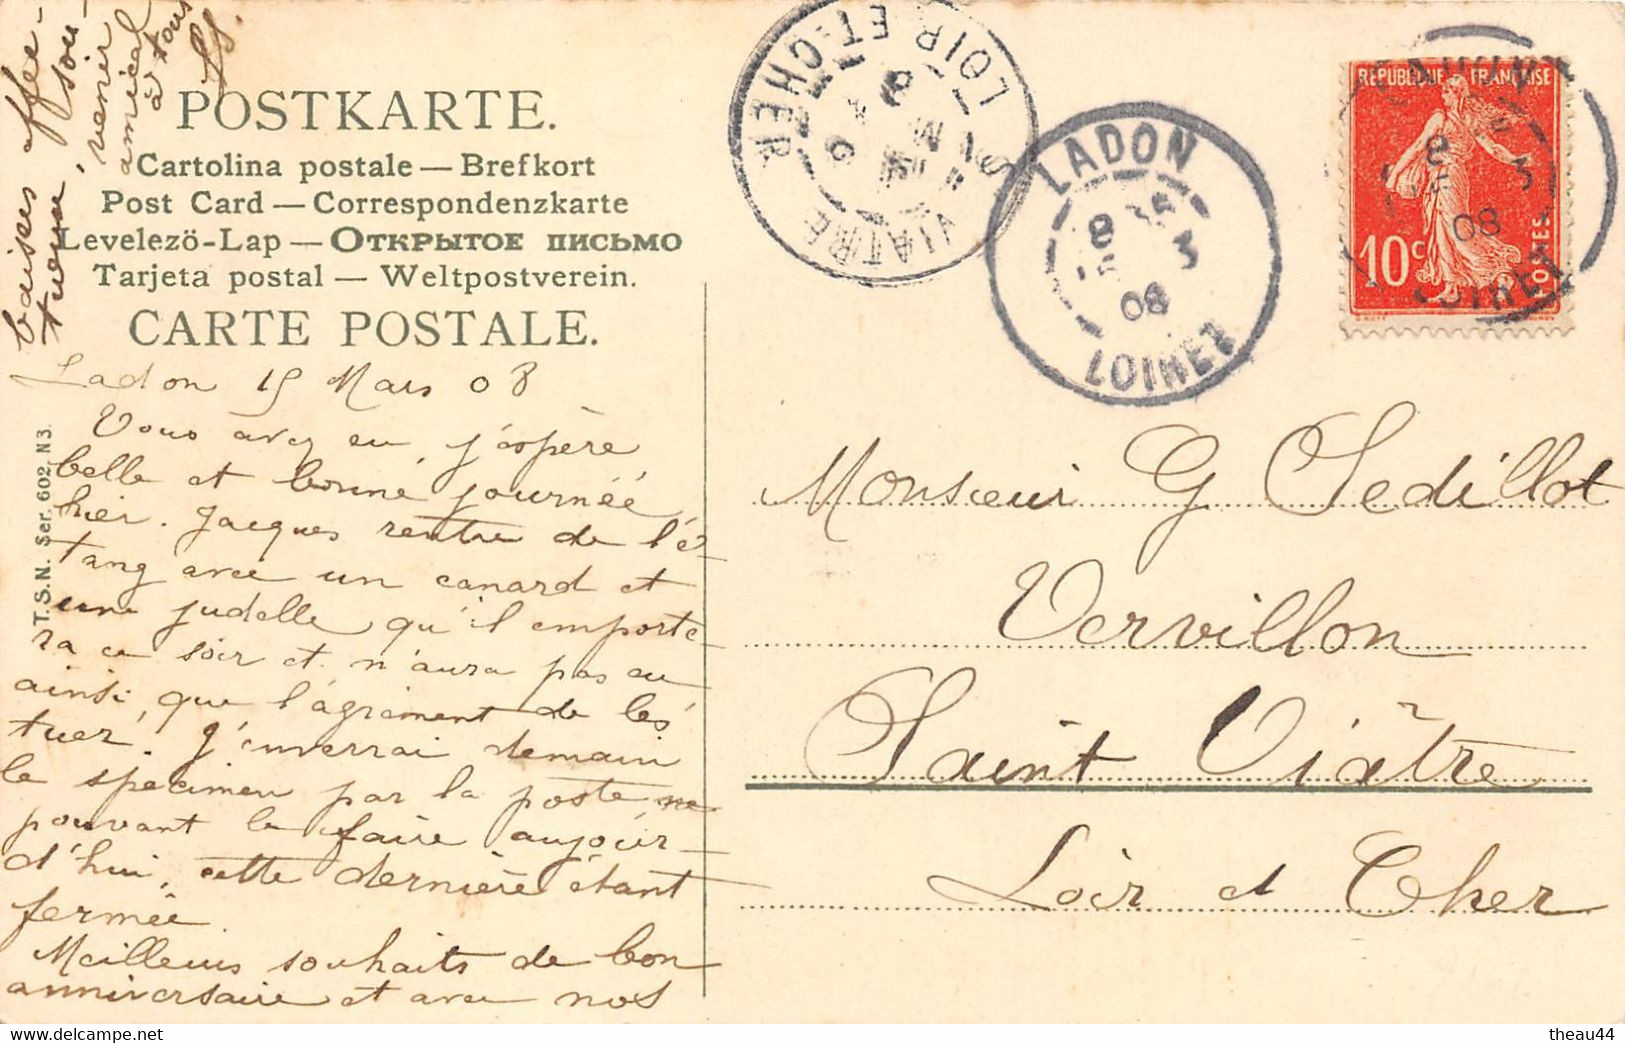 POSTKARTE.
Cartolina postale — Brefkort
Post Card — Correspondenzkarte
Levelezö-Lap — Открытое письмо
Tarjeta postal — Weltpostverein.
CARTE POSTALE.
T.S.N. Ser. 602. N 3.
Ladon 15 Mars 08
Vous avez eu, j'éspère
belle et bonne journée
hier. Jacques rentre de l'é-
tang avec un canard et
une judelle qu'il emporte-
ra ce soir et n'aura pas eu
ainsi que l'agrément de les
tuer. J'enverrai demain
le specimen par la poste ne
pouvant le faire aujour-
d'hui, cette dernière étant
fermée.
Meilleurs souhaits de bon
anniversaire et avec nos
baisers affec-
tueux, sou-
venir
amical
à tous
LADON
8 15
3
08
LOIRET
ST VIATRE
LOIR-ET-CHER
RÉPUBLIQUE FRANÇAISE
10c
POSTES
8
3
08
LOIRET
Monsieur G Sedillot
Vervillon
Saint Viâtre
Loir et Cher
theau44